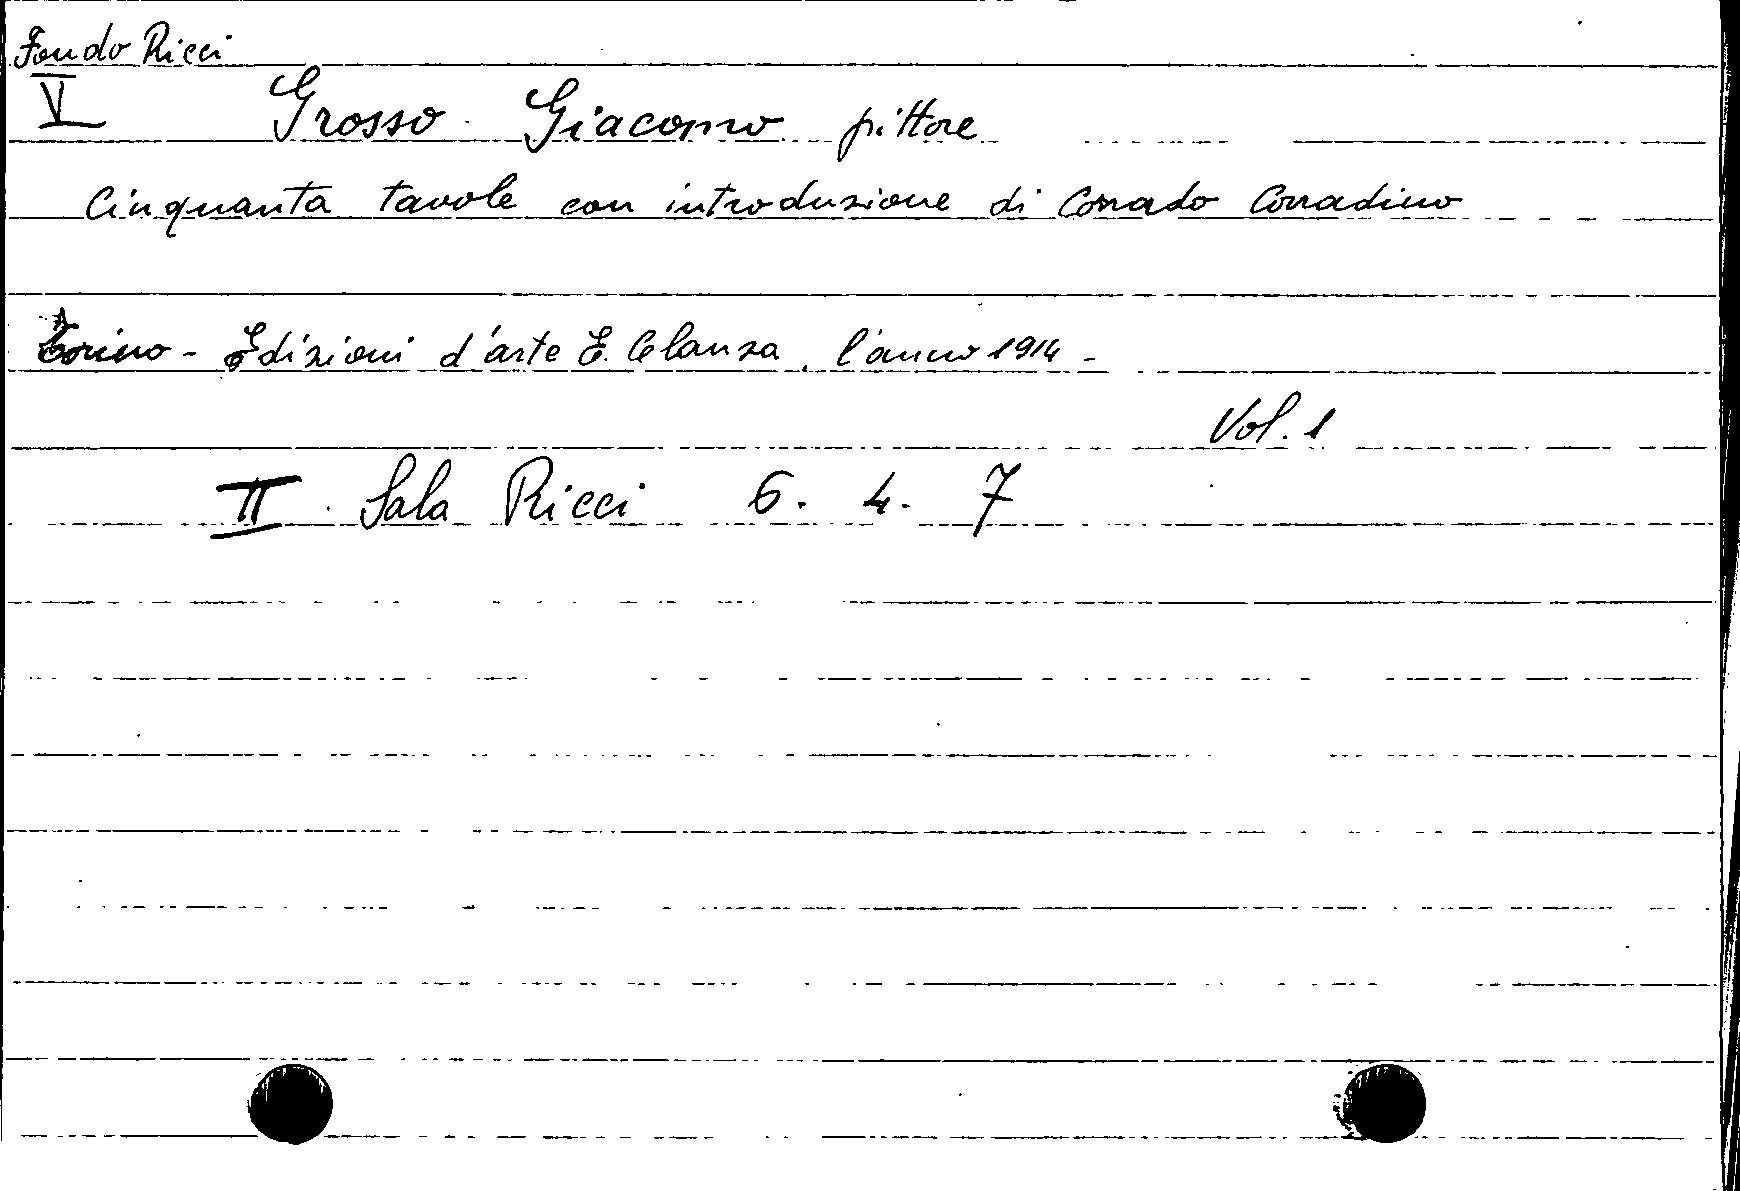 Fondo Ricci
V Grosso Giacomo pittore
Cinquanta tavole con introduzione di Corrado Corradino
Torino - Edizioni d'arte E. Celanza, l'anno 1914 -
Vol. 1
II Sala Ricci 6. 4. 7